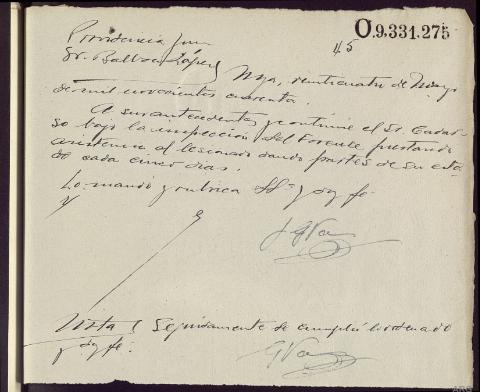 O.9.331.275
45
Providencia Juez
Sr. Balboa López
veinticuatro de Mayo
de mil novecientos cuarenta.
A sus antecedentes y continúe el Sr.
so bajo la inspección del Forense prestando
asistencia al lesionado dando partes de su esta-
do cada cinco días.
Lo mandó y rubrica Sª y doy fe.
Nota Seguidamente se cumplió lo ordenado
y doy fe.
ARG